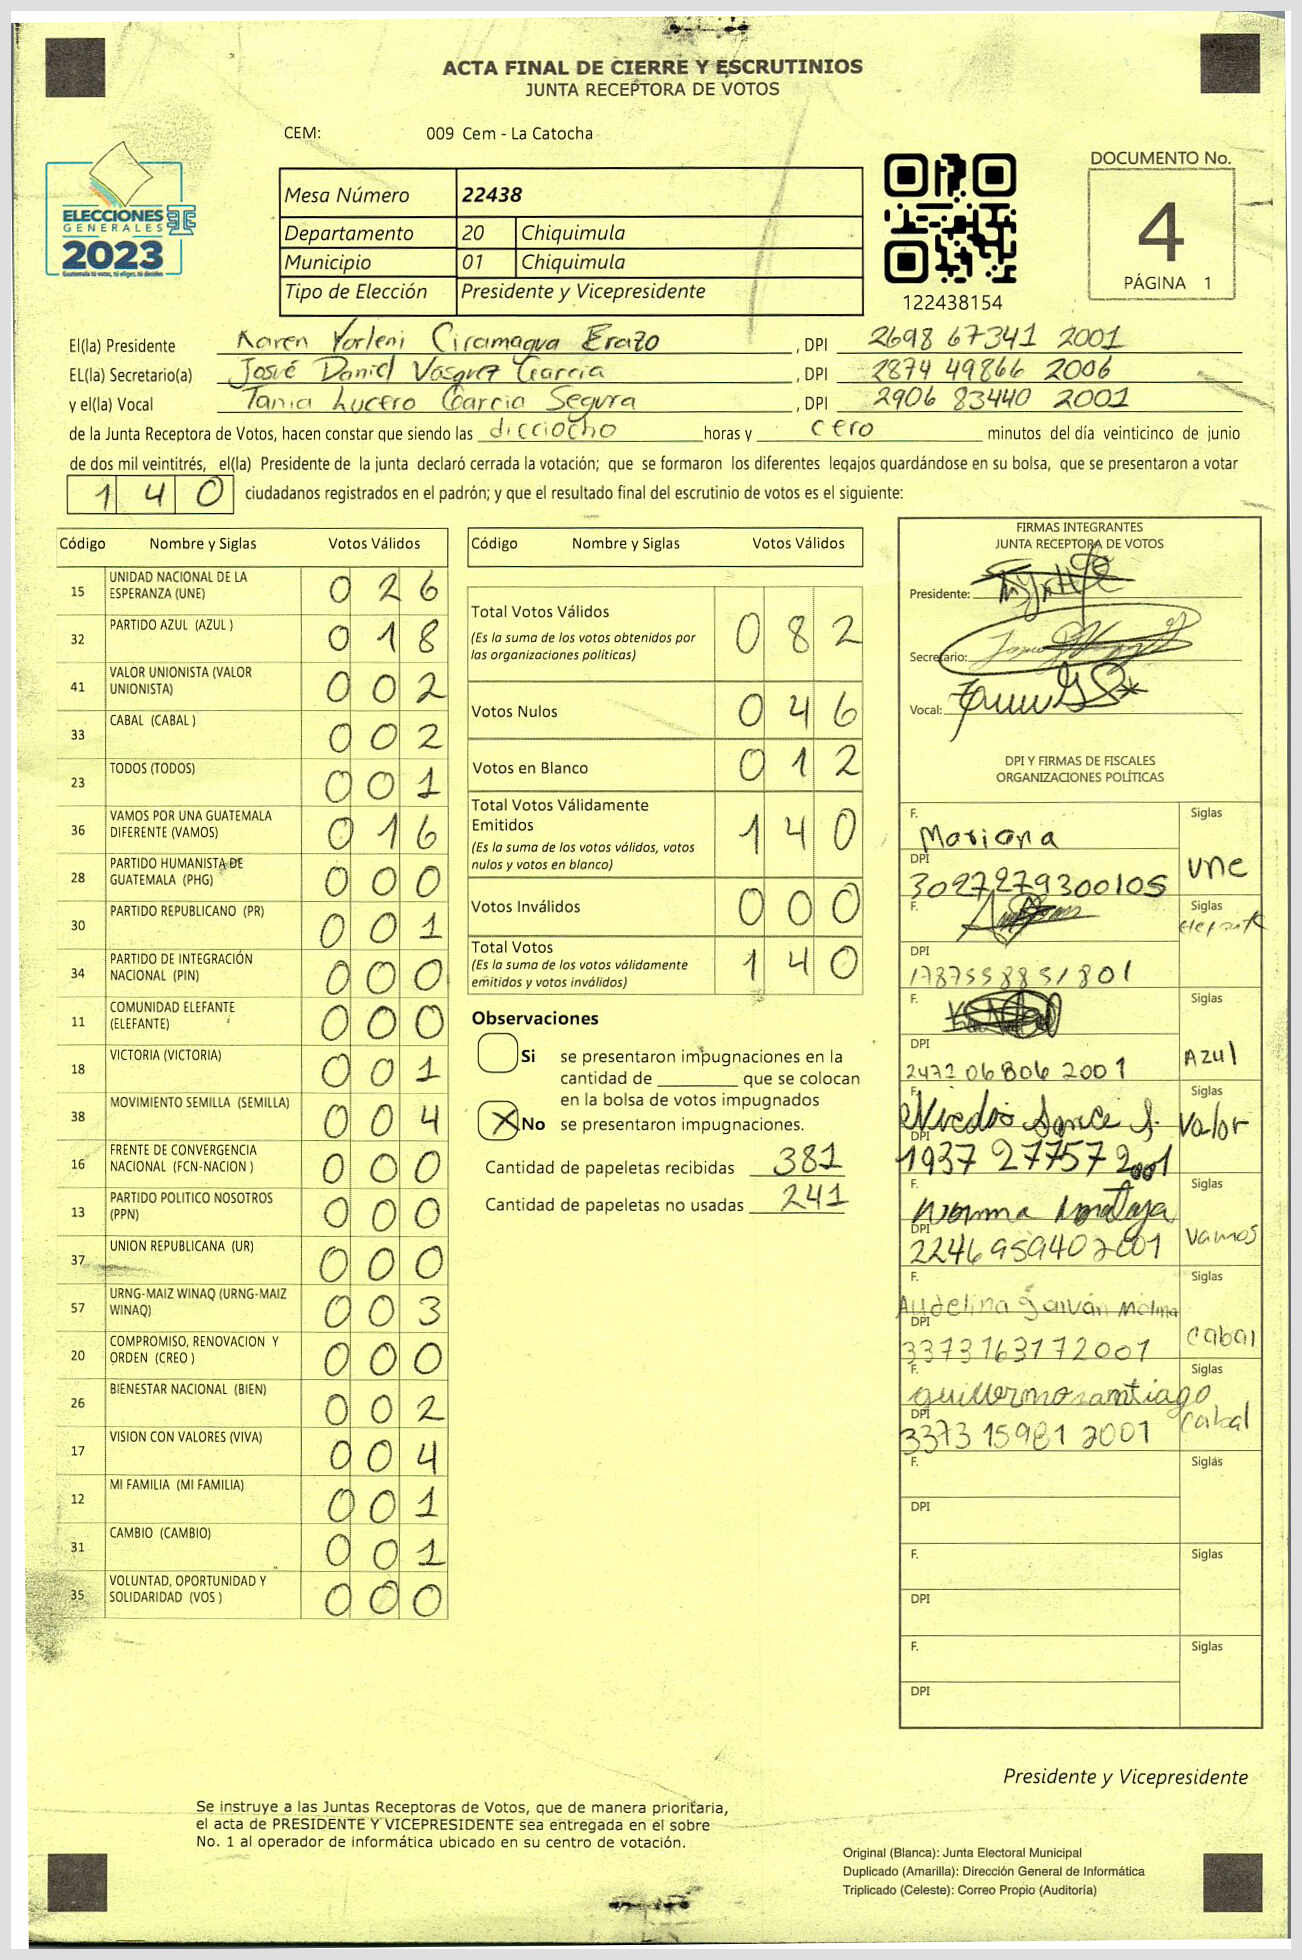 ACTA FINAL DE CIERRE Y ESCRUTINIOS
JUNTA RECEPTORA DE VOTOS
CEM: 009 Cem - La Catocha
ELECCIONES
GENERALES
2023
Guatemala tú votas, tú eliges, tú decides
Mesa Número 22438
Departamento 20 Chiquimula
Municipio 01 Chiquimula
Tipo de Elección Presidente y Vicepresidente
122438154
DOCUMENTO No.
4
PÁGINA 1
El(la) Presidente Karen Yorleni Ciramagua Erazo , DPI 2698 67341 2001
EL(la) Secretario(a) Josué Daniel Vasquez Garcia , DPI 2874 49866 2006
y el(la) Vocal Tania Lucero Garcia Segura , DPI 2906 83440 2001
de la Junta Receptora de Votos, hacen constar que siendo las dieciocho horas y cero minutos del día veinticinco de junio
de dos mil veintitrés, el(la) Presidente de la junta declaró cerrada la votación; que se formaron los diferentes legajos guardándose en su bolsa, que se presentaron a votar
1 4 0 ciudadanos registrados en el padrón; y que el resultado final del escrutinio de votos es el siguiente:
Código Nombre y Siglas Votos Válidos
15 UNIDAD NACIONAL DE LA ESPERANZA (UNE) 0 2 6
32 PARTIDO AZUL (AZUL ) 0 1 8
41 VALOR UNIONISTA (VALOR UNIONISTA) 0 0 2
33 CABAL (CABAL ) 0 0 2
23 TODOS (TODOS) 0 0 1
36 VAMOS POR UNA GUATEMALA DIFERENTE (VAMOS) 0 1 6
28 PARTIDO HUMANISTA DE GUATEMALA (PHG) 0 0 0
30 PARTIDO REPUBLICANO (PR) 0 0 1
34 PARTIDO DE INTEGRACIÓN NACIONAL (PIN) 0 0 0
11 COMUNIDAD ELEFANTE (ELEFANTE) 0 0 0
18 VICTORIA (VICTORIA) 0 0 1
38 MOVIMIENTO SEMILLA (SEMILLA) 0 0 4
16 FRENTE DE CONVERGENCIA NACIONAL (FCN-NACION ) 0 0 0
13 PARTIDO POLITICO NOSOTROS (PPN) 0 0 0
37 UNION REPUBLICANA (UR) 0 0 0
57 URNG-MAIZ WINAQ (URNG-MAIZ WINAQ) 0 0 3
20 COMPROMISO, RENOVACION Y ORDEN (CREO ) 0 0 0
26 BIENESTAR NACIONAL (BIEN) 0 0 2
17 VISION CON VALORES (VIVA) 0 0 4
12 MI FAMILIA (MI FAMILIA) 0 0 1
31 CAMBIO (CAMBIO) 0 0 1
35 VOLUNTAD, OPORTUNIDAD Y SOLIDARIDAD (VOS ) 0 0 0
Código Nombre y Siglas Votos Válidos
Total Votos Válidos 0 8 2
(Es la suma de los votos obtenidos por
las organizaciones políticas)
Votos Nulos 0 4 6
Votos en Blanco 0 1 2
Total Votos Válidamente
Emitidos 1 4 0
(Es la suma de los votos válidos, votos
nulos y votos en blanco)
Votos Inválidos 0 0 0
Total Votos 1 4 0
(Es la suma de los votos válidamente
emitidos y votos inválidos)
Observaciones
Si se presentaron impugnaciones en la
cantidad de ________ que se colocan
en la bolsa de votos impugnados
X No se presentaron impugnaciones.
Cantidad de papeletas recibidas 381
Cantidad de papeletas no usadas 241
FIRMAS INTEGRANTES
JUNTA RECEPTORA DE VOTOS
Presidente:
Secretario:
Vocal:
DPI Y FIRMAS DE FISCALES
ORGANIZACIONES POLÍTICAS
F. Mariana Siglas
DPI 3027279300105 une
F. Siglas elefante
DPI 1787558851801
F. Siglas
DPI 2472 06806 2001 Azul
F. Siglas Valor
DPI 1937 27757 2001
F. Norma Siglas
DPI 2246959402001 Vamos
F. Audelina Galván Molina Siglas
DPI 3373163172001 Cabal
F. guillermo santiago Siglas
DPI 3373 15981 2001 Cabal
F. Siglas
DPI
F. Siglas
DPI
F. Siglas
DPI
Presidente y Vicepresidente
Se instruye a las Juntas Receptoras de Votos, que de manera prioritaria,
el acta de PRESIDENTE Y VICEPRESIDENTE sea entregada en el sobre
No. 1 al operador de informática ubicado en su centro de votación.
Original (Blanca): Junta Electoral Municipal
Duplicado (Amarilla): Dirección General de Informática
Triplicado (Celeste): Correo Propio (Auditoría)